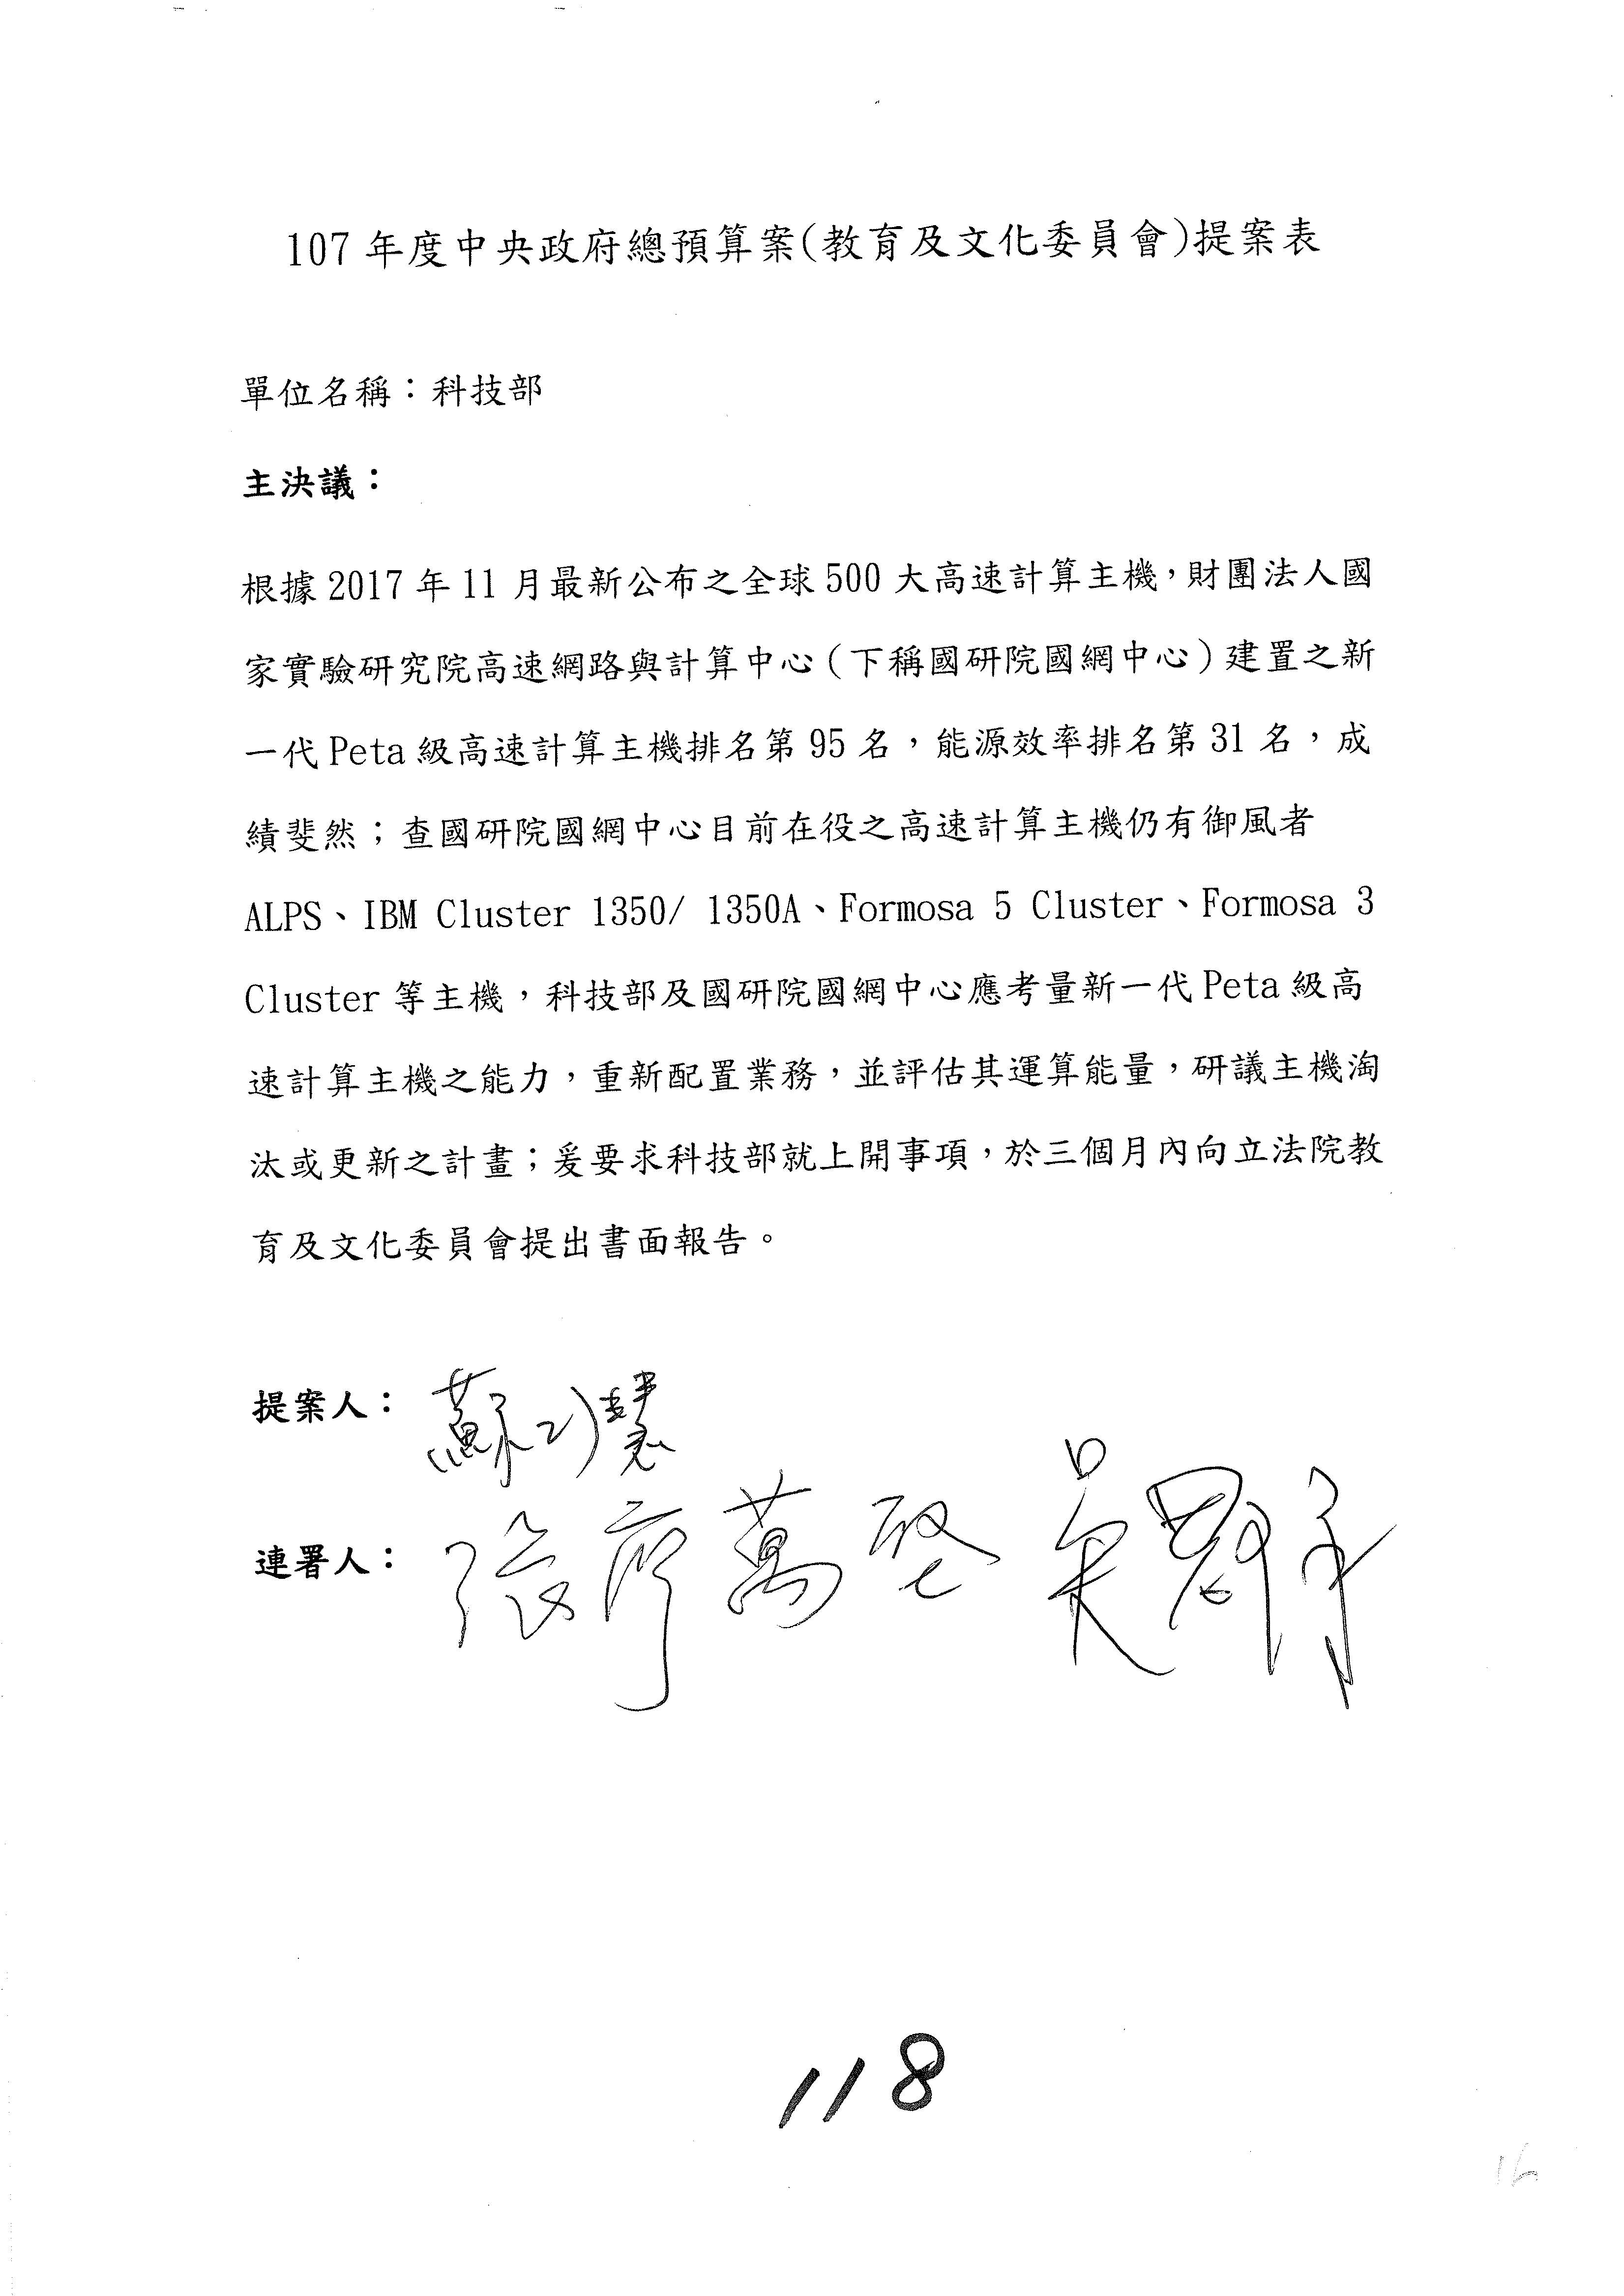 107 年度中央政府總預算案(教育及文化委員會)提案表
單位名稱：科技部
主決議：
根據 2017 年 11 月最新公布之全球 500 大高速計算主機，財團法人國
家實驗研究院高速網路與計算中心（下稱國研院國網中心）建置之新
一代 Peta 級高速計算主機排名第 95 名，能源效率排名第 31 名，成
績斐然；查國研院國網中心目前在役之高速計算主機仍有御風者
ALPS、IBM Cluster 1350/ 1350A、Formosa 5 Cluster、Formosa 3
Cluster 等主機，科技部及國研院國網中心應考量新一代 Peta 級高
速計算主機之能力，重新配置業務，並評估其運算能量，研議主機淘
汰或更新之計畫；爰要求科技部就上開事項，於三個月內向立法院教
育及文化委員會提出書面報告。
提案人：蘇巧慧
連署人：張廖萬堅 吳思瑤
118